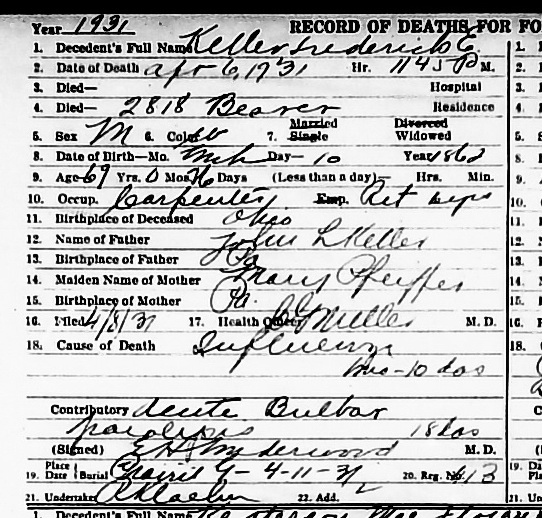 Year 1931 RECORD OF DEATHS FOR FO
1. Decedent's Full Name Keller Frederick E.
2. Date of Death Apr 6, 1931 Hr. 1145 P M.
3. Died— Hospital
4. Died— 2818 Beaver Residence
5. Sex M 6. Color W 7. Married Single Divorced Widowed
8. Date of Birth—Mo. Mch Day— 10 Year 1862
9. Age 69 Yrs. 0 Mos. 26 Days (Less than a day)— Hrs. Min.
10. Occup. Carpenter Emp. Ret
11. Birthplace of Deceased Ohio
12. Name of Father John L Keller
13. Birthplace of Father Pa
14. Maiden Name of Mother Mary Pfeiffer
15. Birthplace of Mother Pa.
16. Filed 4/8/31 17. Health Officer Miller M. D.
18. Cause of Death Influenza
10 das
Contributory Acute Bulbar
paralysis 18 das
(Signed) Underwood M. D.
19. Place Date Burial 4-11-31 20. Reg. No. 413
21. Undertaker 22. Add.
1. Decedent's Full Name